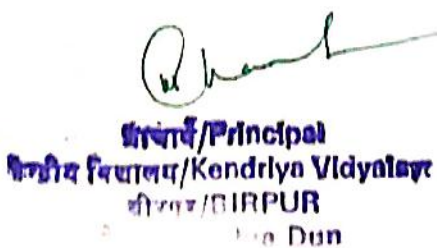 प्राचार्य/Principal
केन्द्रीय विद्यालय/Kendriya Vidyalaya
बीरपुर/BIRPUR
Dun